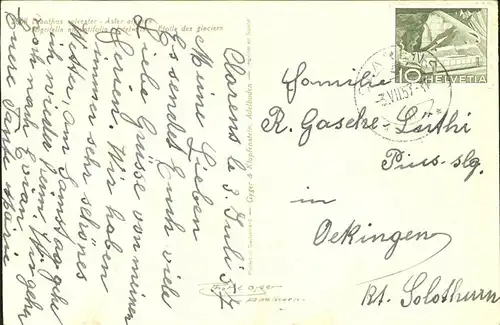 Clarens le 3. Juli 57
Meine Lieben
Es sendet Euch viele
liebe Grüsse von meinen
Ferien. Wir haben
immer sehr schönes
Wetter, am Samstag gehe
ich wieder heim. Wir gehn
noch nach Evian.
Eure Tante Marie
Dianthus silvester - Aster alpinus
Etoile des glaciers
Gyger & Klopfenstein, Adelboden
HELVETIA
10
3.VII.57
Familie
R. Gasche-Lüthi
Oekingen
Kt. Solothurn